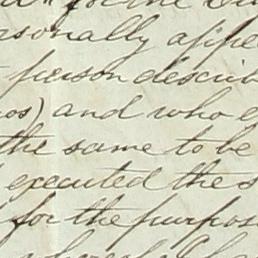 for the
rsonally appe
person describ
os) and who e
the same to be
executed the s
for the purpos